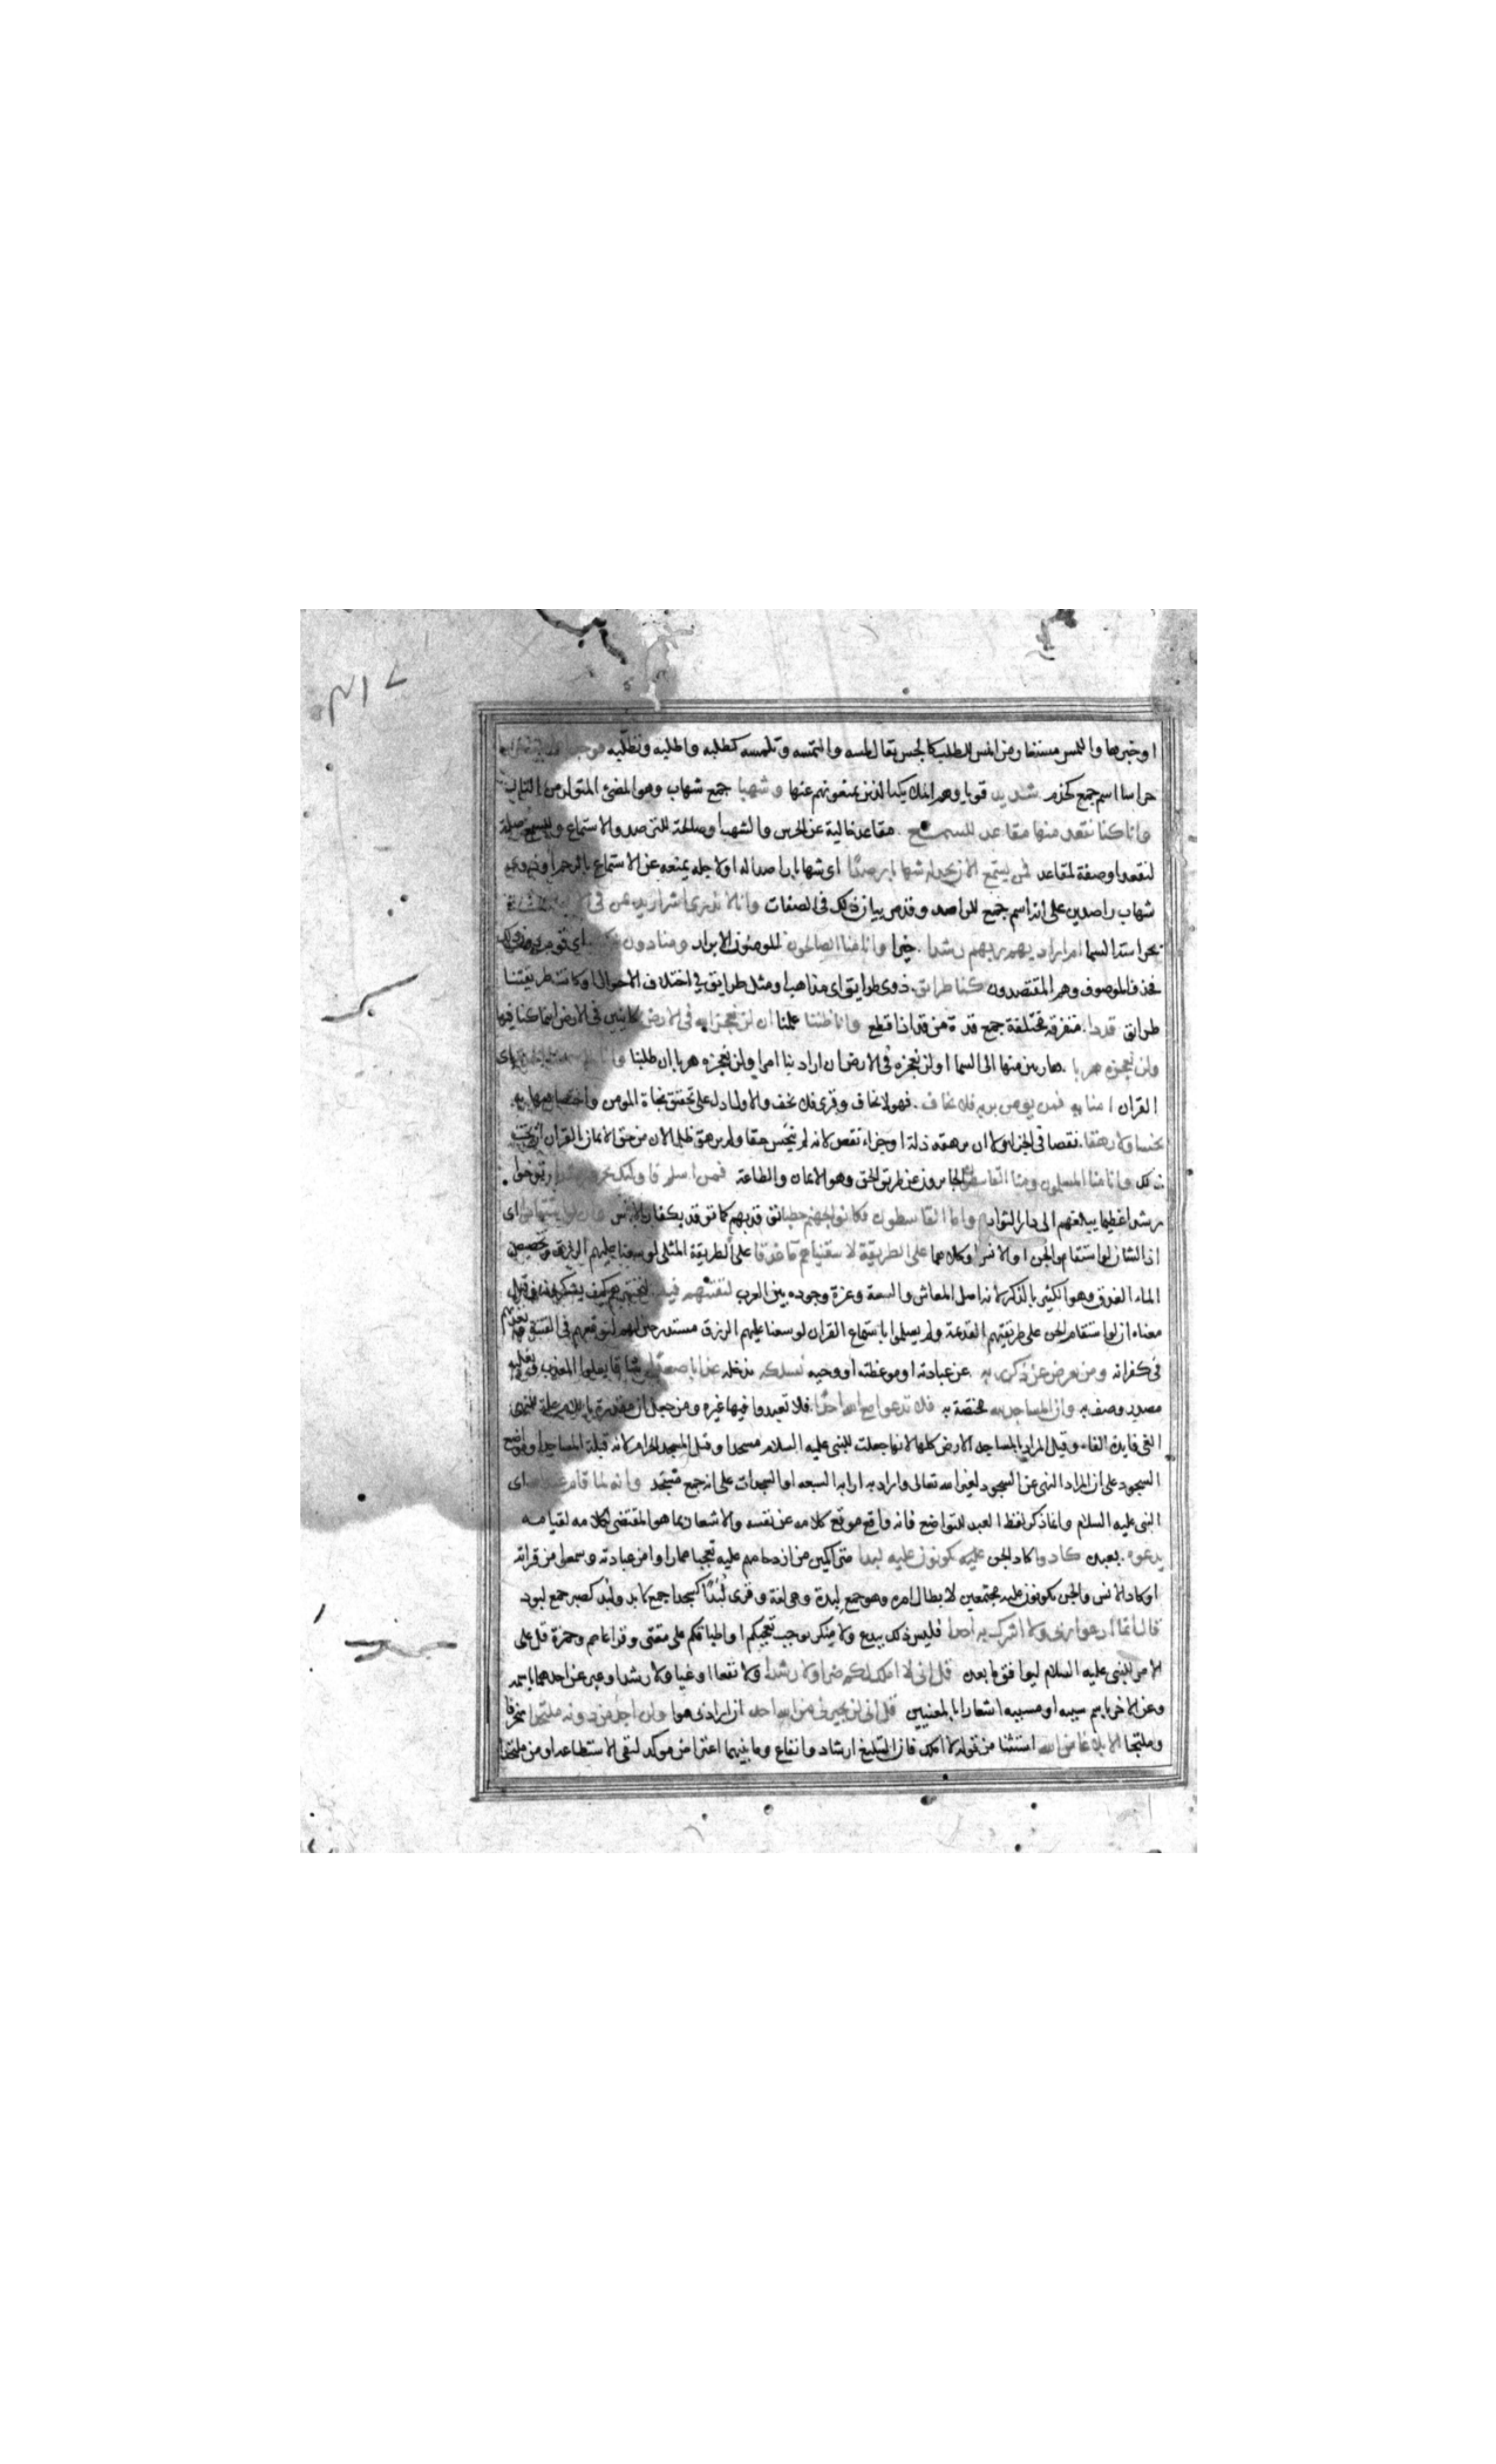 او خبرها واللمس مستعار من المس للطلب كالجس يقال لمسه والتمسه وتلمسه كطلبه واطلبه وتطلبه فوجدناها
حراسا اسم جمع كخدم شديدا قويا وهم الملائكة الذين يمنعونهم عنها وشهبا جمع شهاب وهو المضئ المتولد من النار
وانا كنا نقعد منها مقاعد للسمع مقاعد خالية عن الحرس والشهب او صالحة للترصد والاستماع وللسمع صلة
لنقعد او صفة لمقاعد فمن يستمع الان يجد له شهابا رصدا اى شهابا راصدا له ولاجله يمنعه عن الاستماع بالرجم او ذوى
شهاب راصدين على انه اسم جمع للراصد وقد مر بيان ذلك فى الصفات وانا لا ندرى اشر اريد بمن فى
بحراسة السما ام اراد بهم ربهم رشدا خيرا وانا منا الصالحون المومنون الابرار ومنا دون ذلك اى قوم دون ذلك
فحذف الموصوف وهم المقتصدون كنا طرائق ذوى طرايق اى مذاهب او مثل طرايق فى اختلاف الاحوال او كانت طريقتنا
طرائق قددا متفرقة مختلفة جمع قدة من قد اذا قطع وانا ظننا علمنا ان لن نعجز الله فى الارض كائنين فى الارض اينما كنا فيها
ولن نعجزه هربا هاربين منها الى السما او لن نعجزه فى الارض ان اراد بنا امرا ولن نعجزه هربا ان طلبنا وانا لما سمعنا الهدى اى
القران امنا به فمن يومن بربه فلا يخاف فهو لا يخاف وقرى فلا يخف والاول ادل على تحقق نجاة المومن واختصاصها به
بخسا ولا رهقا نقصا فى الجزاء ولا ان يرهقه ذلة او جزاء نقص لانه لم يبخس حقا ولم يرهق ظلما لان من حق الايمان بالقران ان يجتنب
ذلك وانا منا المسلمون ومنا القاسطون الجايرون عن طريق الحق وهو الايمان والطاعة فمن اسلم فاولئك تحروا رشدا توخوا
رشدا عظيما يبلغهم الى دار الثواب واما القاسطون فكانوا لجهنم حطبا توقد بهم كما توقد بكفار الانس وان لو استقاموا اى
ان الشان لو استقام الجن او الانس او كلاهما على الطريقة لاسقيناهم ماء غدقا على الطريقة المثلى لوسعنا عليهم الرزق وتخصيص
الماء الغدق وهو الكثير بالذكر لانه اصل المعاش والسعة وعزة وجوده بين العرب لنفتنهم فيه لنختبرهم كيف يشكرونه وقيل
معناه ان لو استقام الجن على طريقتهم القديمة ولم يسلموا باستماع القران لوسعنا عليهم الرزق مستدرجين لهم لنوقعهم فى الفتنة ونعذبهم
فى كفرانه ومن يعرض عن ذكر ربه عن عبادته او موعظته او وحيه نسلكه ندخله عذابا صعدا شاقا يعلو المعذب ويغلبه
مصدر وصف به وان المساجد لله مختصة به فلا تدعوا مع الله احدا فلا تعبدوا فيها غيره ومن جعل ان مقدرة باللام علة للنهى
الغى فايدة الفاء وقيل المراد بالمساجد الارض كلها لانها جعلت للنبى عليه السلام مسجدا وقيل المسجد الحرام لانه قبلة المساجد ومواضع
السجود على ان المراد النهى عن السجود لغير الله تعالى واراد به ارابه السبعه او السجدات على انه جمع مسجد وانه لما قام عبد الله اى
النبى عليه السلام وانما ذكر لفظ العبد للتواضع فانه واقع موقع كلامه عن نفسه والاشعار بما هو المقتضى لكلامه لقيامه
يدعوه يعبده كادوا كاد الجن عليه يكونون عليه لبدا متراكمين من ازدحامهم عليه تعجبا مما راوا من عبادته وسمعوا من قراته
او كاد الانس والجن يكونون عليه مجتمعين لابطال امره وهو جمع لبدة وهى لغة وقرى لُبَّدًا كسجدا جمع لابد ولُبُد كصبر جمع لبود
قال انما ادعوا ربى ولا اشرك به احدا فليس ذلك ببدع ولا منكر يوجب تعجبكم او اطباقكم على مقتى وقرا عاصم وحمزة قل على
الامر للنبى عليه السلام ليوافق ما بعده قل انى لا املك لكم ضرا ولا رشدا ولا نفعا او غيا ولا رشدا وعبر عن احدهما باسمه
وعن الاخر باسم سببه او مسببه اشعارا بالمعنيين قل انى لن يجيرنى من الله احد ان ارادنى بسوء ولن اجد من دونه ملتحدا منحرفا
وملتجا الا بلاغا من الله استثنا من قوله لا املك فان التبليغ ارشاد وانفاع وما بينهما اعتراض موكد لنفى الاستطاعه او من ملتحدا